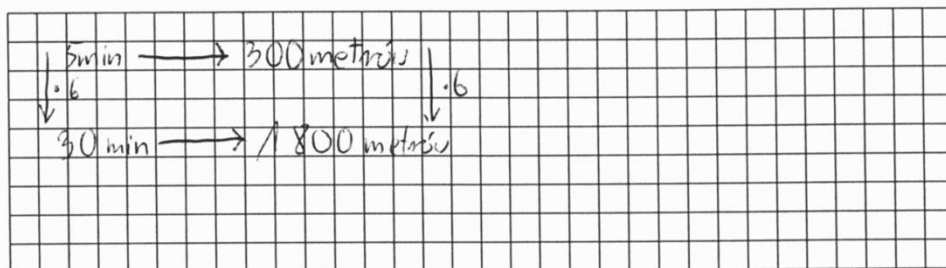 5min → 300 metrów
·6 ·6
30 min → 1800 metrów